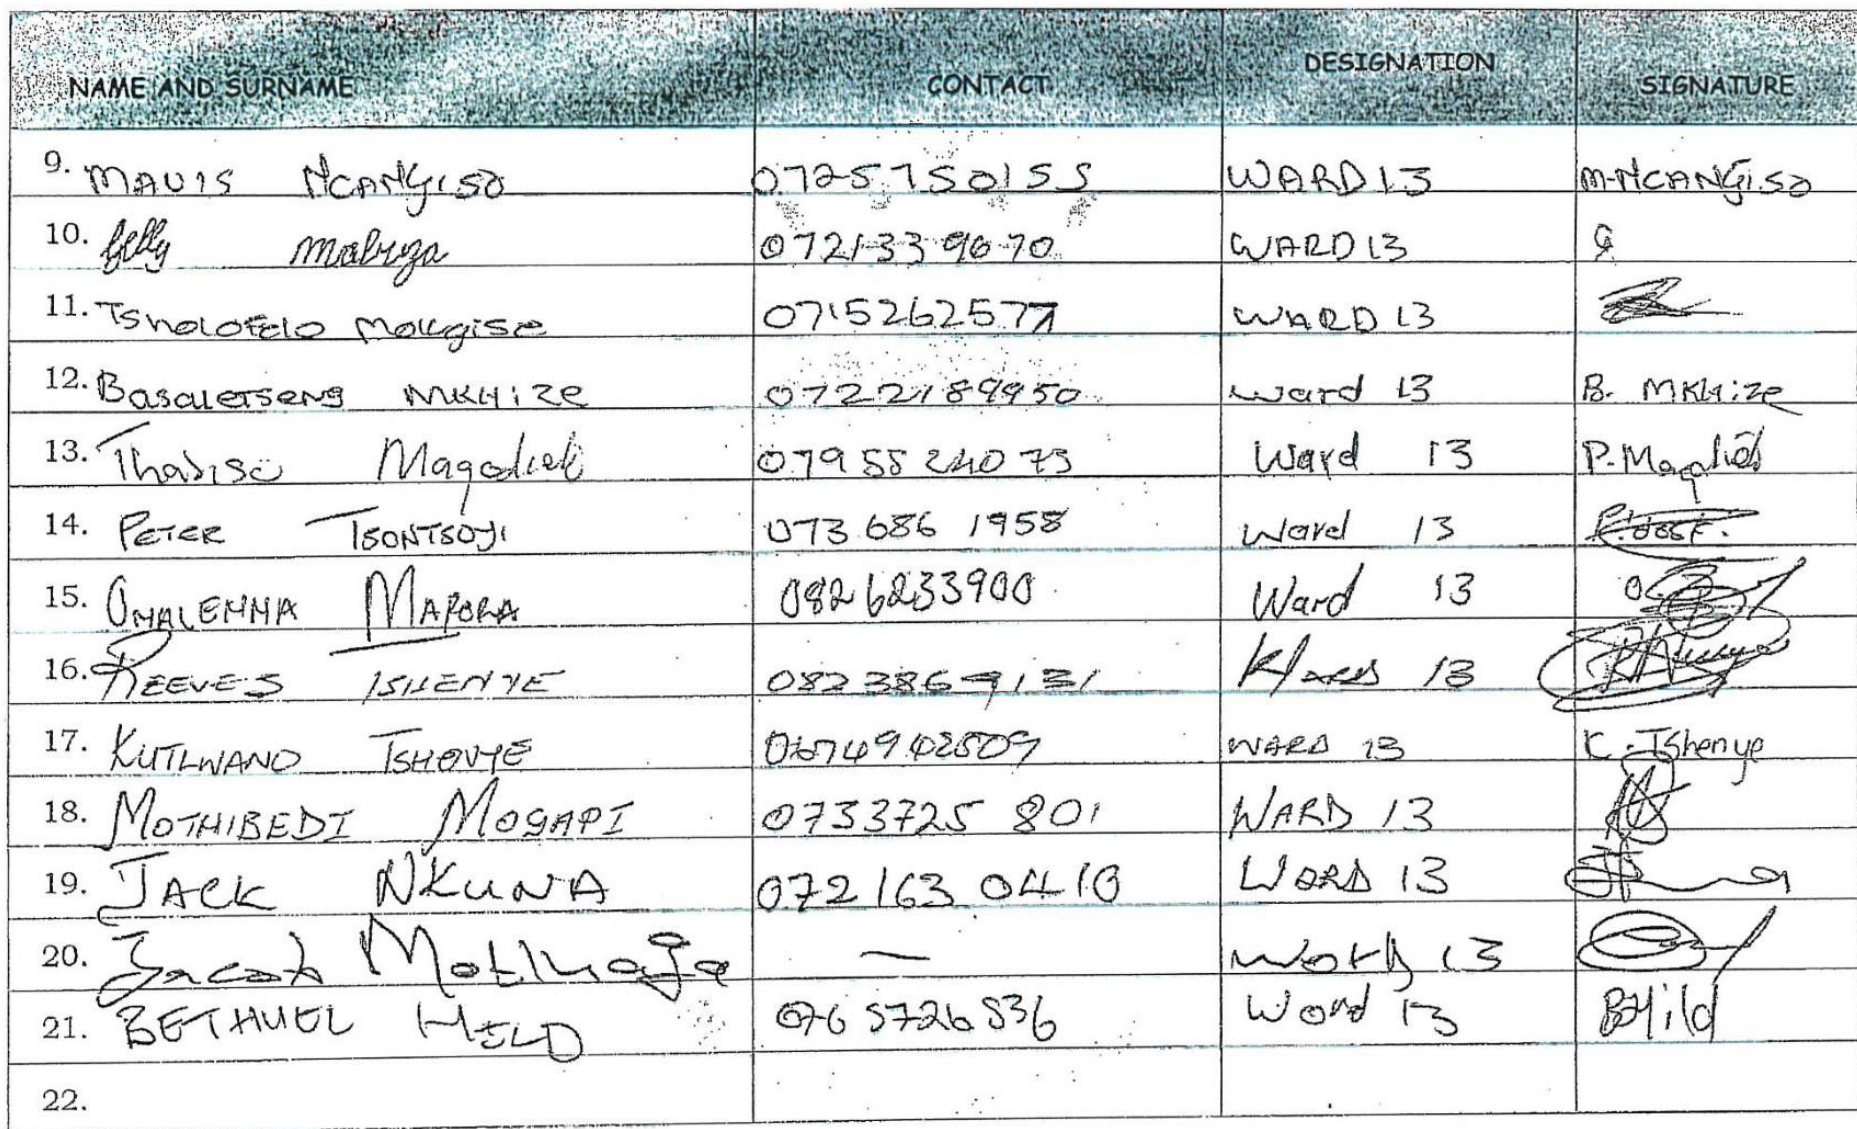 NAME AND SURNAME CONTACT DESIGNATION SIGNATURE
9. MAVIS NCANGISO 0725750155 WARD 13 M-NCANGISO
10. Mabuza 0721339670 WARD 13
11. Tsholofelo Mokgise 0715262577 WARD 13
12. Basaletseng MKHIZE 0722189950 Ward 13 B. MKHIZE
13. Thabiso 0795524073 Ward 13
14. PETER TSONTSOYI 073 686 1958 Ward 13
15. MAPORA 0826233900 Ward 13
16. REEVES TSHENYE 0823869131 13
17. KUTLWANO TSHENYE 0674942509 WARD 13 K. Tshenye
18. MOTHIBEDI MOGAPI 0733725 801 WARD 13
19. JACK NKUNA 072 163 0410 WARD 13
20. Jacob Motlhage — Word 13
21. BETHUEL HILD 0765726536 Word 13 BHild
22.